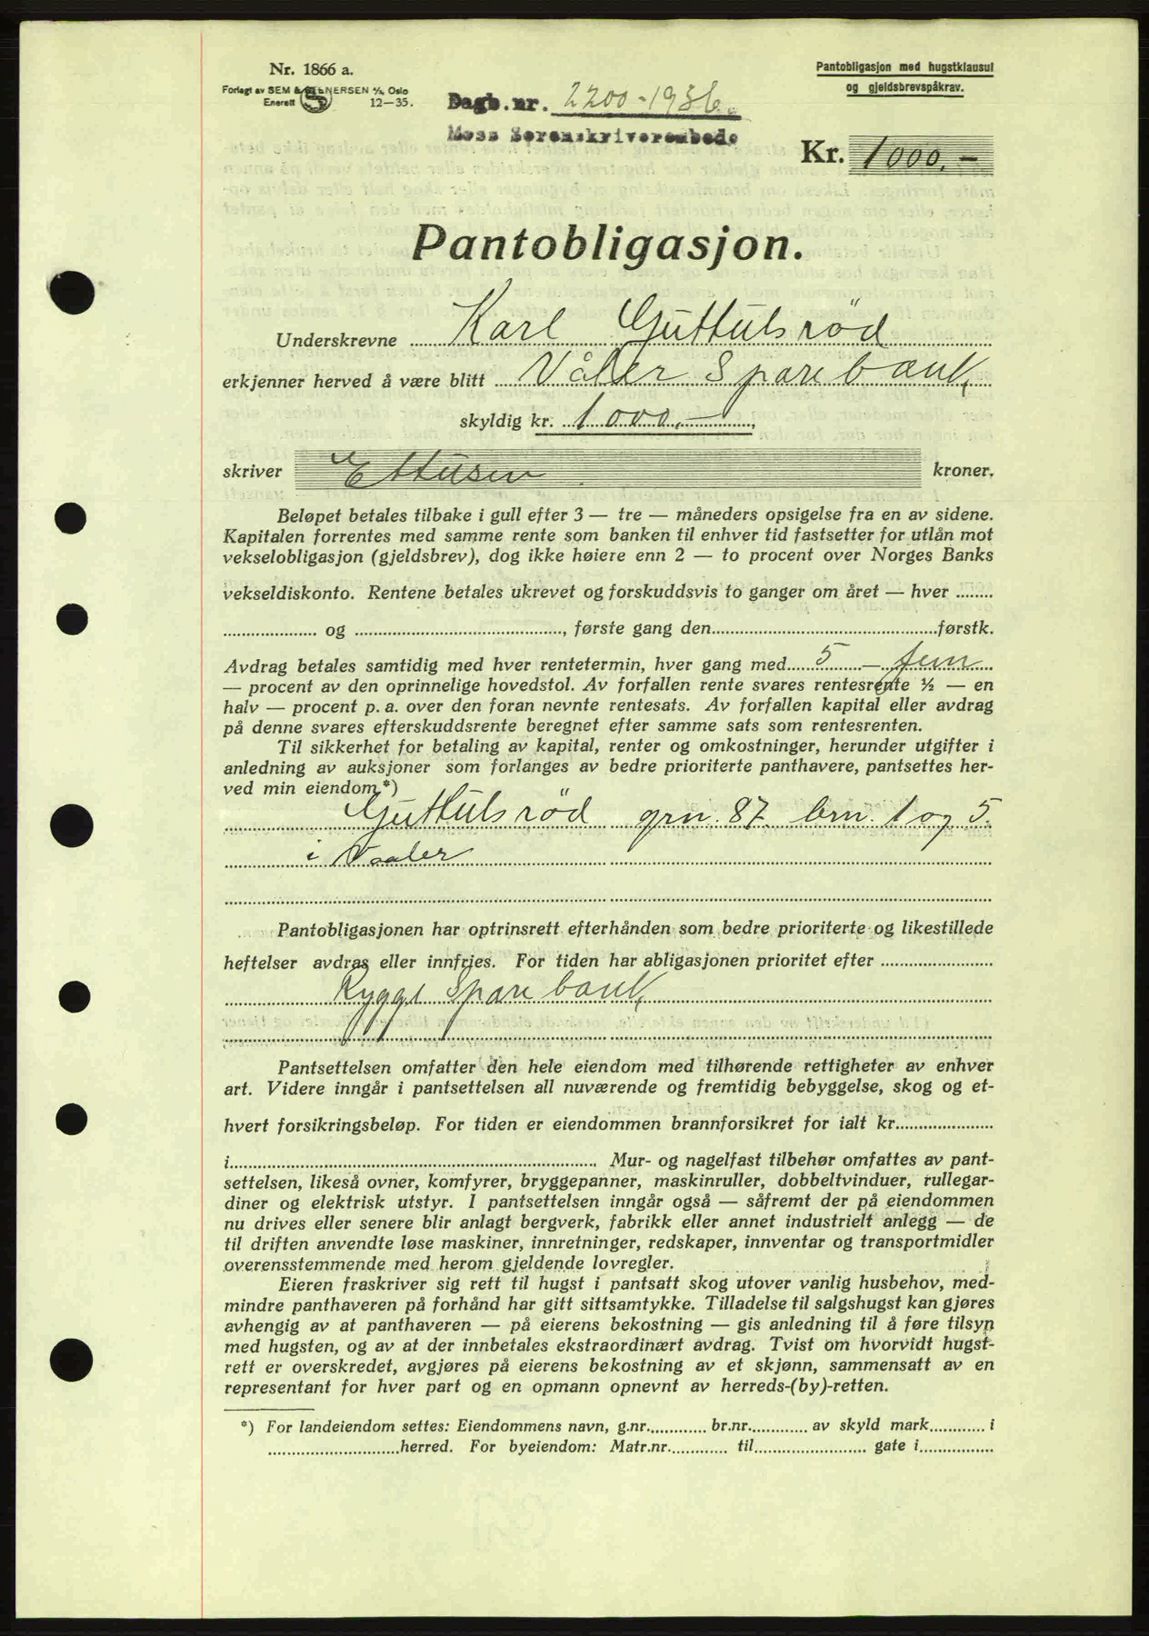 Nr. 1866 a.
Forlagt av SEM & STENERSEN A/S, Oslo
Enerett 12—35.
Pantobligasjon med hugstklausul
og gjeldsbrevspåkrav.
Dagb.nr. 2200-1936.
Moss Sorenskriverembede
Kr. 1000.-
Pantobligasjon.
Underskrevne Karl Guttulsrød
erkjenner herved å være blitt Våler Sparebank,
skyldig kr. 1000.-,
skriver Ettusen kroner.
Beløpet betales tilbake i gull efter 3 — tre — måneders opsigelse fra en av sidene.
Kapitalen forrentes med samme rente som banken til enhver tid fastsetter for utlån mot
vekselobligasjon (gjeldsbrev), dog ikke høiere enn 2 — to procent over Norges Banks
vekseldiskonto. Rentene betales ukrevet og forskuddsvis to ganger om året — hver ........
.................... og ............................................, første gang den................................................førstk.
Avdrag betales samtidig med hver rentetermin, hver gang med 5 — fem
— procent av den oprinnelige hovedstol. Av forfallen rente svares rentesrente ½ — en
halv — procent p. a. over den foran nevnte rentesats. Av forfallen kapital eller avdrag
på denne svares efterskuddsrente beregnet efter samme sats som rentesrenten.
Til sikkerhet for betaling av kapital, renter og omkostninger, herunder utgifter i
anledning av auksjoner som forlanges av bedre prioriterte panthavere, pantsettes her-
ved min eiendom *)
Guttulsrød grn. 87. brn. 1 og 5.
i Vaaler
Pantobligasjonen har optrinsrett efterhånden som bedre prioriterte og likestillede
heftelser avdras eller innfries. For tiden har abligasjonen prioritet efter ........................
Rygge Sparebank,
Pantsettelsen omfatter den hele eiendom med tilhørende rettigheter av enhver
art. Videre inngår i pantsettelsen all nuværende og fremtidig bebyggelse, skog og et-
hvert forsikringsbeløp. For tiden er eiendommen brannforsikret for ialt kr.....................
i.............................................................................. Mur- og nagelfast tilbehør omfattes av pant-
settelsen, likeså ovner, komfyrer, bryggepanner, maskinruller, dobbeltvinduer, rullegar-
diner og elektrisk utstyr. I pantsettelsen inngår også — såfremt der på eiendommen
nu drives eller senere blir anlagt bergverk, fabrikk eller annet industrielt anlegg — de
til driften anvendte løse maskiner, innretninger, redskaper, innventar og transportmidler
overensstemmende med herom gjeldende lovregler.
Eieren fraskriver sig rett til hugst i pantsatt skog utover vanlig husbehov, med-
mindre panthaveren på forhånd har gitt sittsamtykke. Tilladelse til salgshugst kan gjøres
avhengig av at panthaveren — på eierens bekostning — gis anledning til å føre tilsyn
med hugsten, og av at der innbetales ekstraordinært avdrag. Tvist om hvorvidt hugst-
rett er overskredet, avgjøres på eierens bekostning av et skjønn, sammensatt av en
representant for hver part og en opmann opnevnt av herreds-(by)-retten.
*) For landeiendom settes: Eiendommens navn, g.nr............. br.nr............. av skyld mark............ i
............................herred. For byeiendom: Matr.nr............. til........................ gate i................